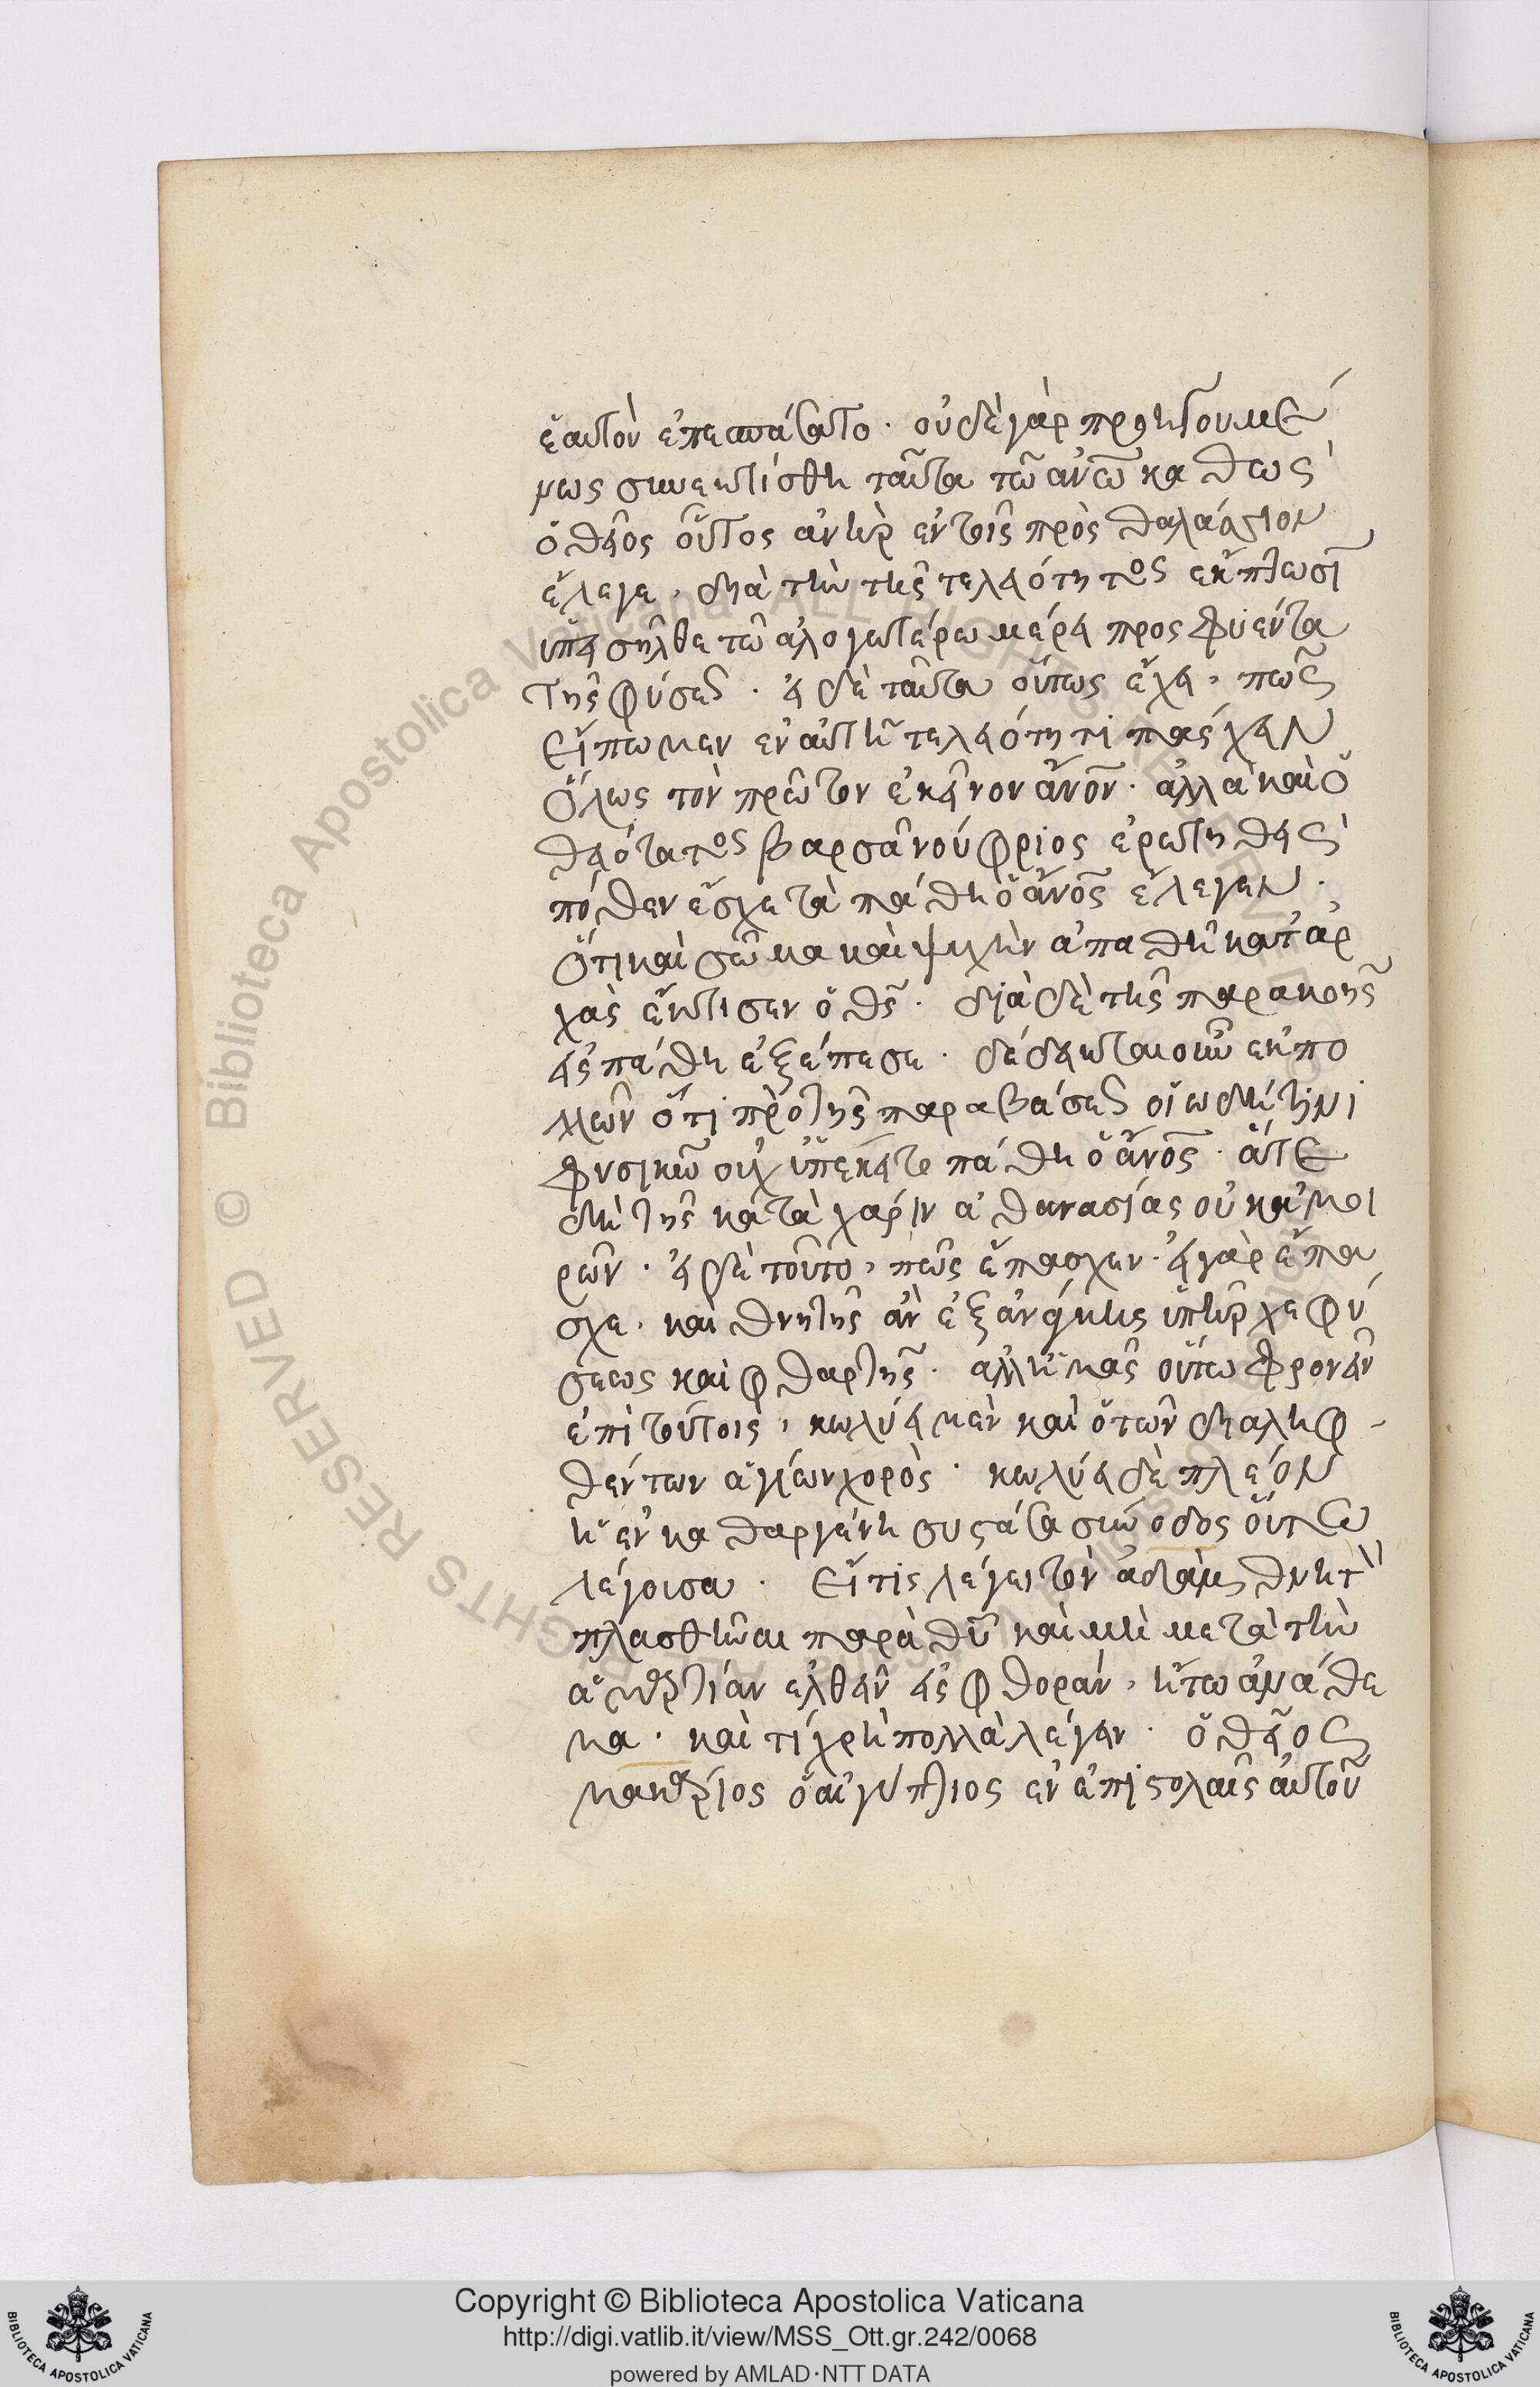 ἑαυτὸν ἐπεσπάσατο. οὐδὲ γὰρ προηγουμέ
νως συνεκτίσθη ταῦτα τῶ ἀνω̅ καθὼς
ὁ θεῖος οὗτος ἀνὴρ ἐν τοῖς πρὸς θαλάσσιον
ἔλεγε, διὰ τὴν τῆς τελειότητος ἔκπτωσϊ
ὑπεισῆλθε τῶ ἀλογωτέρω μέρει προσφυέντα
τῆς φύσεως. εἰ δὲ ταῦτα οὕτως ἔχει, πῶς
εἴπωμεν ἐν αὐτῆ τελειότητι πάσχειν
ὅλως τὸν πρῶτον ἐκεῖνον ἄνον. ἀλλὰ καὶ ὁ
θειότατος βαρσανούφριος ἐρωτηθεὶς
πόθεν ἔσχε τὰ πάθη ὁ ἄνος ἔλεγεν.
ὅτι καὶ σῶμα καὶ ψυχὴν ἀπαθῆ κατ' ἀρ
χὰς ἔκτισεν ὁ θς. διὰ δὲ τῆς παρακοῆς
εἰς πάθη ἐξέπεσε. δέδεικται οὖν ἐκ πο
λλῶν ὅτι πρὸ τῆς παραβάσεως οἱωδήτινι
φυσικῶ οὐχ ὑπέκειτο πάθη ὁ ἄνος. ἅτε
δὴ τῆς κατὰ χάριν ἀθανασίας οὐκ ἀμοι
ρῶν. εἰ δὲ τοῦτο, πῶς ἔπασχεν. εἰ γὰρ ἔπα
σχε. καὶ θνητῆς ἂν ἐξ ἀνάγκης ὑπῆρχε φύ
σεως καὶ φθαρτῆς. ἀλλ' ἡμᾶς οὕτω φρονεῖν
ἐπὶ τούτοις, κωλύει μὲν καὶ ὁ τῶν διαληφ
θέντων ἁγίων χορὸς. κωλύει δὲ πλέον
ἡ ἐν καθαργένη συστᾶσα σύνοδος οὕτω
λέγουσα. Εἴ τις λέγει τὸν ἀδὰμ θνητὸν
πλασθῆναι παρὰ θυ καὶ μὴ μετὰ τὴν
ἁμαρτίαν ἐλθεῖν εἰς φθορὰν, ἤτω ἀνάθε
μα. καὶ τί χρὴ πολλὰ λέγειν. ὁ θεῖος
μακάριος ὁ αἰγύπτιος ἐν ἐπιστολαῖς αὐτοῦ
Copyright © Biblioteca Apostolica Vaticana
http://digi.vatlib.it/view/MSS_Ott.gr.242/0068
powered by AMLAD·NTT DATA
BIBLIOTECA APOSTOLICA VATICANA
BIBLIOTECA APOSTOLICA VATICANA